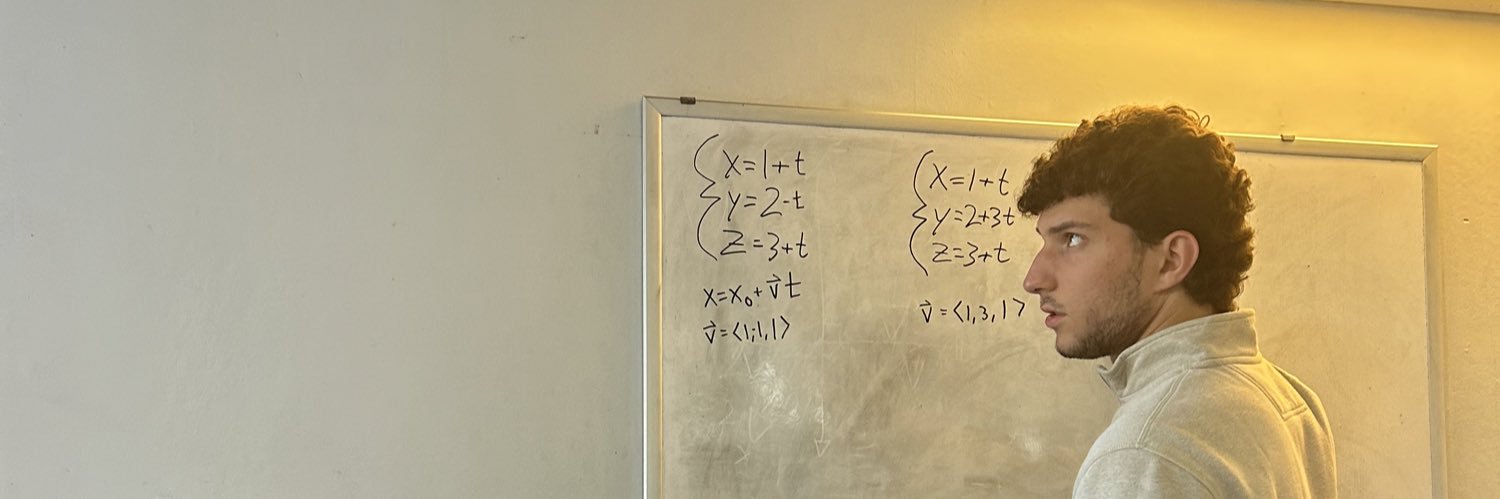 x=1+t
y=2-t
z=3+t
x=x₀+v⃗t
v⃗=<1,-1,1>
x=1+t
y=2+3t
z=3+t
v⃗=<1,3,1>